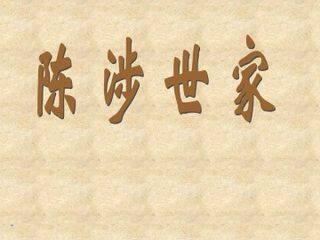 陈涉世家